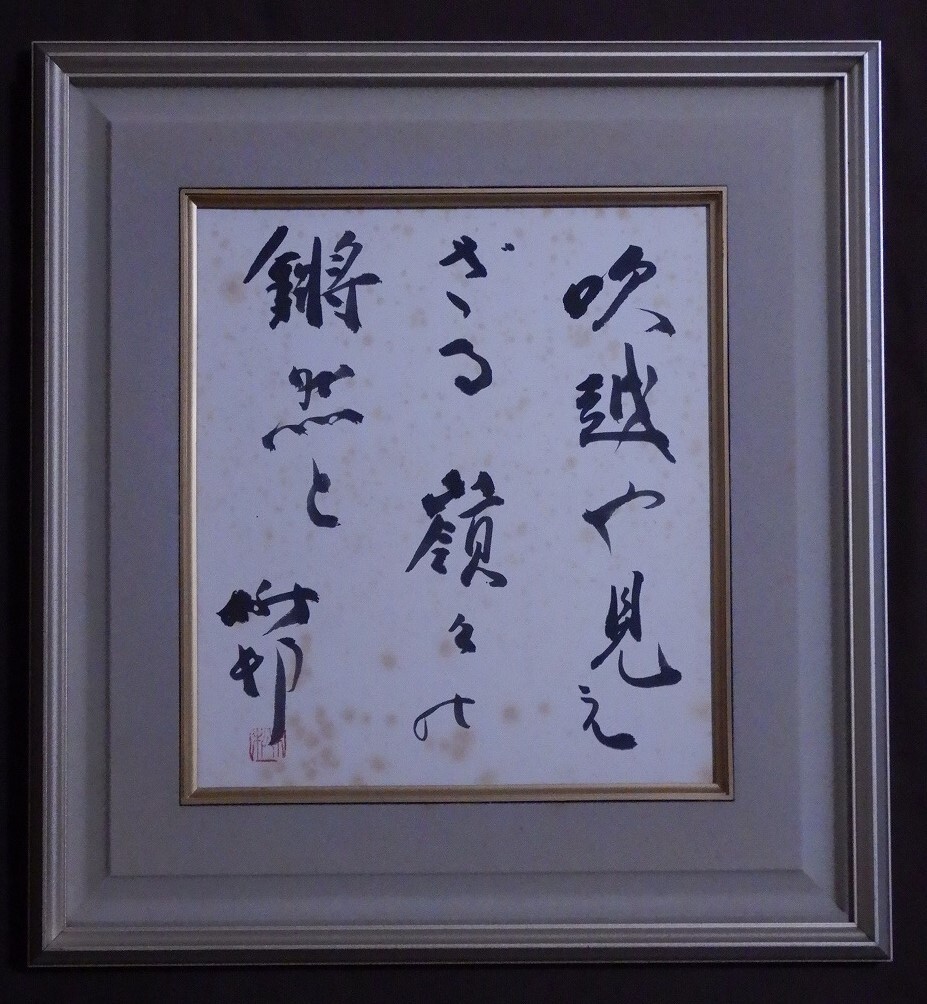 吹越や見え
ざる嶺々の
鏘然と
楸邨